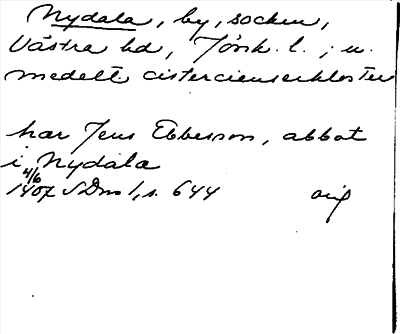 Nydala, by, socken,
Västra hd, Jönk. l. ; u.
medelt cistercienserkloster
har Jens Ebbesson, abbot
i Nydala
4/6
1407 SDns 1, s. 644 orig